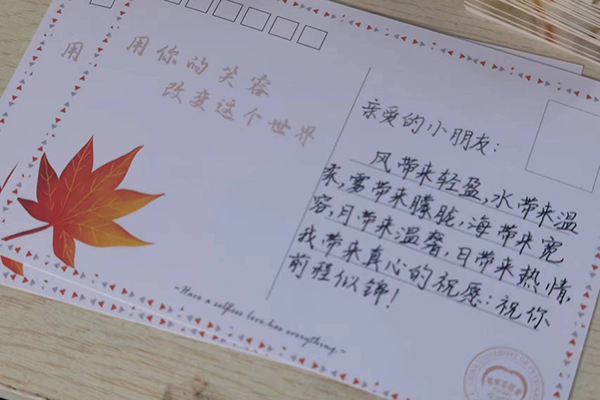 用你的笑容
改变这个世界
亲爱的小朋友：
风带来轻盈,水带来温
柔,雾带来朦胧,海带来宽
容,月带来温馨,日带来热情,
我带来真心的祝愿：祝你
前程似锦！
~Have a selfless love,has everything.~
用